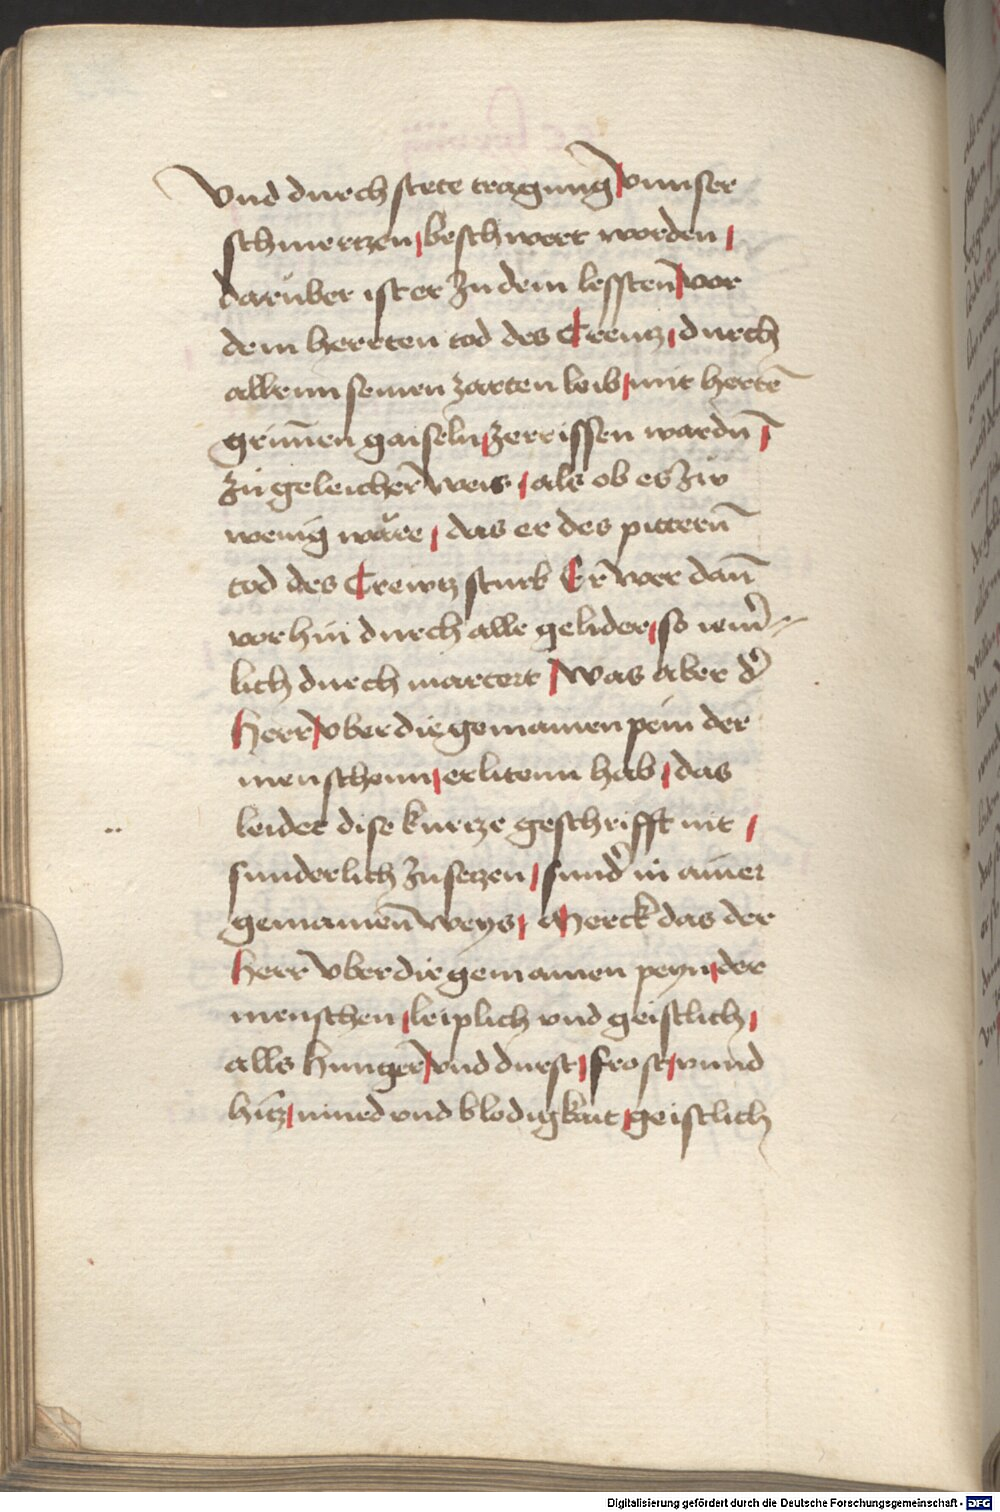 vnd durch stete tragunḡ vnnser
schmertzen / beschwert worden /
darüber ist er zu dem lessten̄ vor
dem herrten tod des Crentz / durch
allenn seinen zarten leib / mit hertē
grim̄en gaiseln / zerrissen wardn̄ /
zu geleicher̄ weis / als ob es zu
wenig wäre / das er des pittern̄
tod des Crewtz sturb Er̄ wer dan̄
vorhin durch alle gelider / so iem̄er=
lich durch martert / Was aber der
Herr̄ vber die gemainen pein der
menschenn / erlitenn hab / das
leidet dise kurtze geschrifft nit /
sunderlich zusetzen / sunder in ainer
gemainen̄ weys / Merck das der
Herr vber die gemainen peyn / der
menschen / leiplich vnd geistlich /
alls hunger̄ / vnd durst / frost / vnnd
hitz / mued vnd blodigkait / geistlich
Digitalisierung gefördert durch die Deutsche Forschungsgemeinschaft - DFG